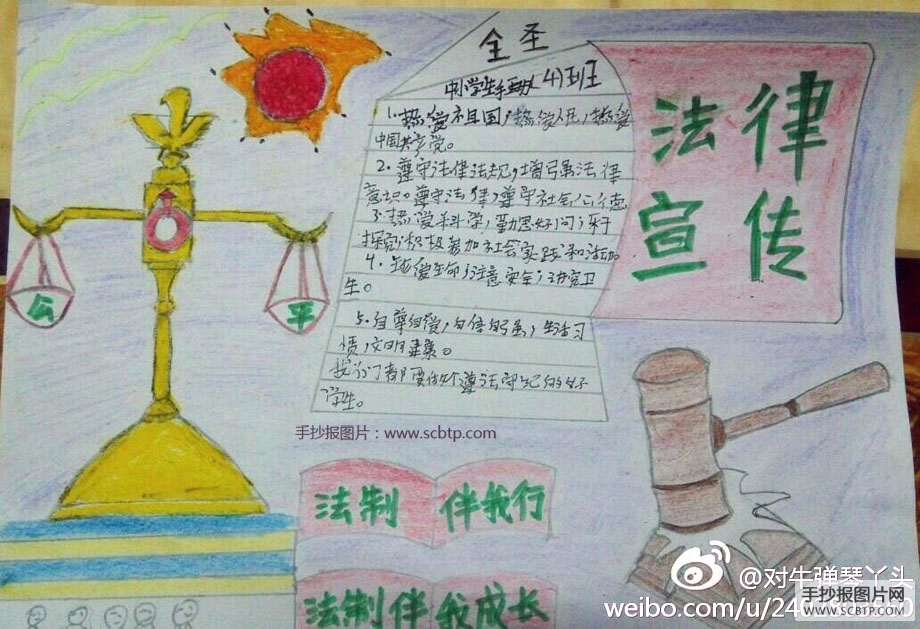 全圣
中小学生手抄报 4)班
法律
宣传
1.热爱祖国,热爱人民,热爱
中国共产党。
2.遵守法律法规,增强法律
意识。遵守法律,遵守社会公德
3.热爱科学,勤思好问,乐于
探究,积极参加社会实践和活动
4.珍爱生命,注意安全,讲究卫
生。
5.自尊自爱,自信自强,生活习
惯,文明健康。
我们都要做个遵法守纪的好
学生。
公
平
手抄报图片:www.scbtp.com
法制 伴我行
法制伴 我成长
@对牛弹琴丫头
weibo.com/u/24
手抄报图片网
WWW.SCBTP.COM